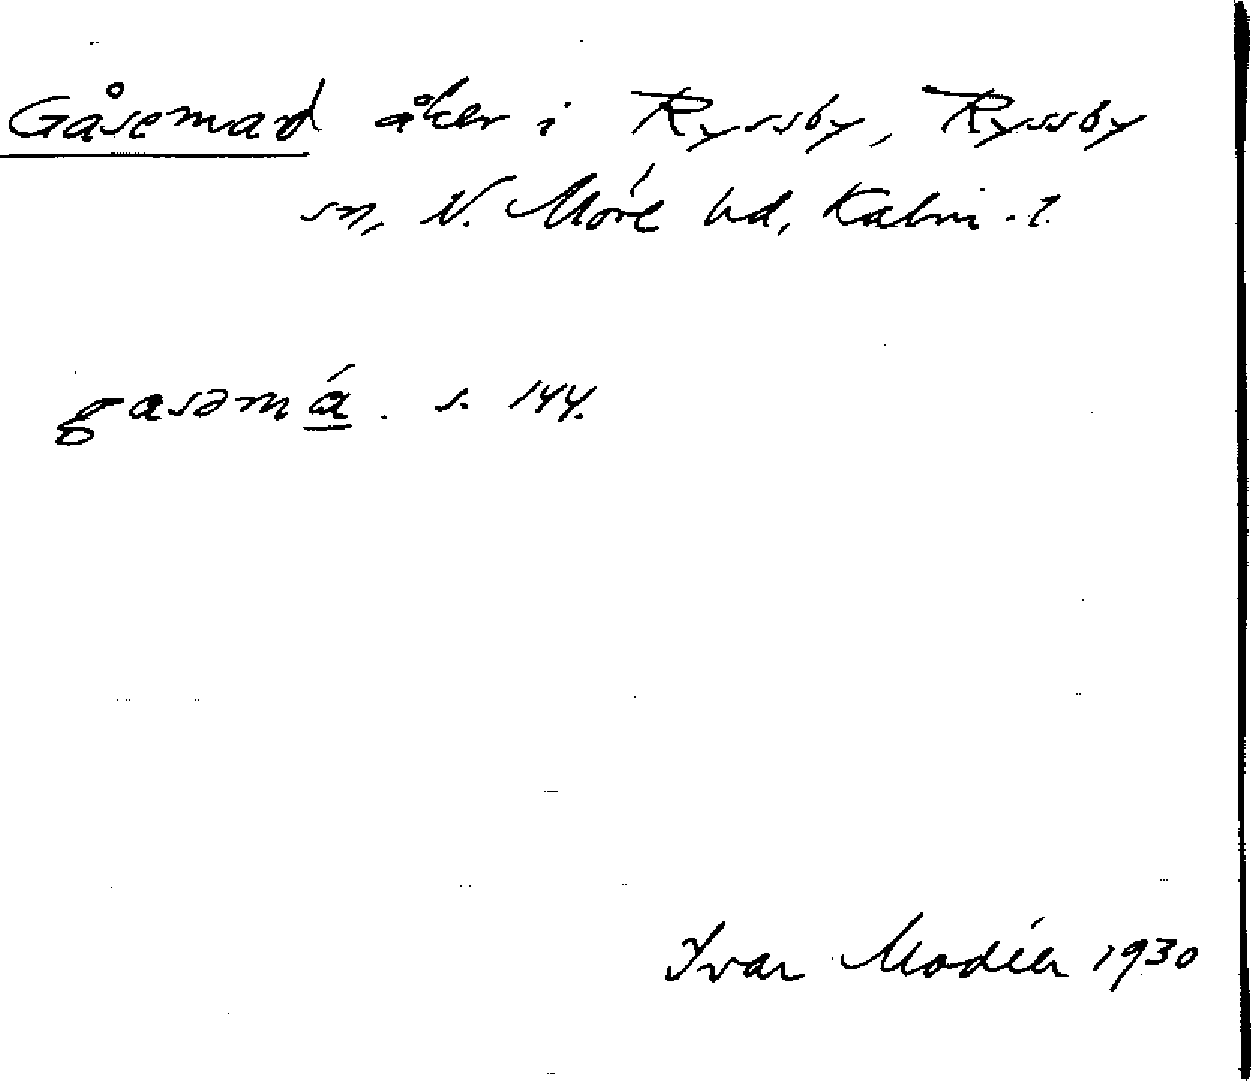 Gåsemad åker i Ryssby, Ryssby
sn, N. Möre hd, Kalm. l.
gasəmá. s. 144.
Ivar Modéer 1930